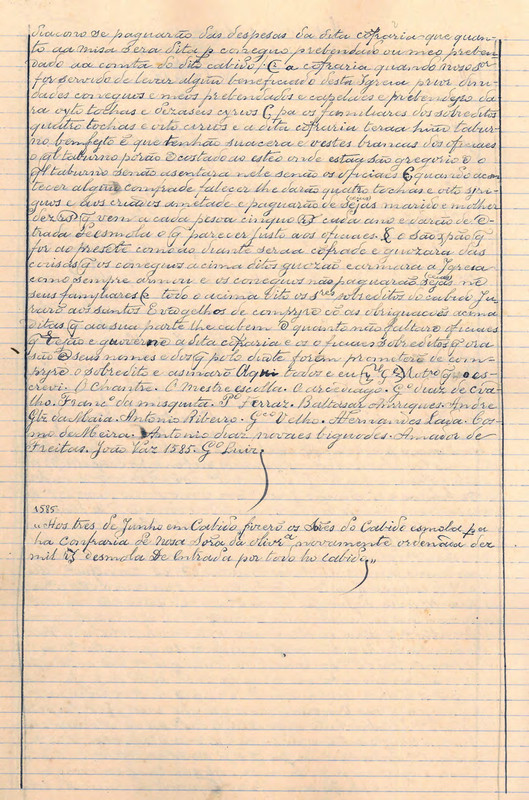 diacono se paguarão das despesas da dita cõfraria que quan-
to aa misa sera dita p coneguo prebendado ou meo preben-
dado aa comta do dito cabido; E a cõfraria quando noso sor
for servido de levar algũ beneficiado desta Igreia prior dini-
dades coneguos e meos prebendados e
ra oyto tochas e dezaseis cyrios E pa os familiares dos sobreditos
quatro tochas e oito cirios e a dita cõfraria teraa huũ tabur-
no bem feyto e que tenhão sua cera e vestes brancas dos oficiaes
o ql taburno porão Encostado ao esteo onde estaa são gregorio e o
ql taburno senão asentara nele senão os oficiaes E quando acon-
tecer algũ comfrade falecer lhe darão quatro tochas e oito
e aos criados ametade e paguarão de Sejas marido e molher
dez rs q vem a cada pesoa cinquo rs cada ano e darão de En-
trada de esmola o q parecer justo aos oficiaes. E
for ao presẽte como ao diante seraa cõfrade e guozara das
cousas q os coneguos acima ditos guozão e armara a Igreia
como sempre armou e os coneguos não paguarão Sejas nẽ
seus familiares E todo o acima dito os sres sobreditos do cabido Ju-
rarão aos santos Evãgelhos de comprir cõ as obriguacões acima
ditas q aa sua parte lhe cabem E quanto não faltarẽ oficiaes
q Rejão e guovernẽ a dita cõfraria e os oficiaes sobreditos q ora
são E seus nomes e dos q polo diãte forem prometerão de com-
pryr o sobredito e asinarão Aqui todos e eu
crevi. O Chantre. O Mestre escolla. O arcediago. Go diaz de Cva-
lho. Franco da misquita. Po Ferraz. Baltasar Anriques. Andre
Glz da Maia. Antonio Ribeiro. Gco Velho. Hernandes Laxa. Cos-
mo de Meira. Antonio diaz novaes biguodes. Amador de
Freitas. João Vaz 1585. Go Luis
1585-
"Aos tres de Junho em Cabido fizerõ os Sres do Cabido esmola pa
ha confraria de Nosa Sora da olivra novamente ordenada dez
mil rs desmola De Entrada por todo ho cabido"